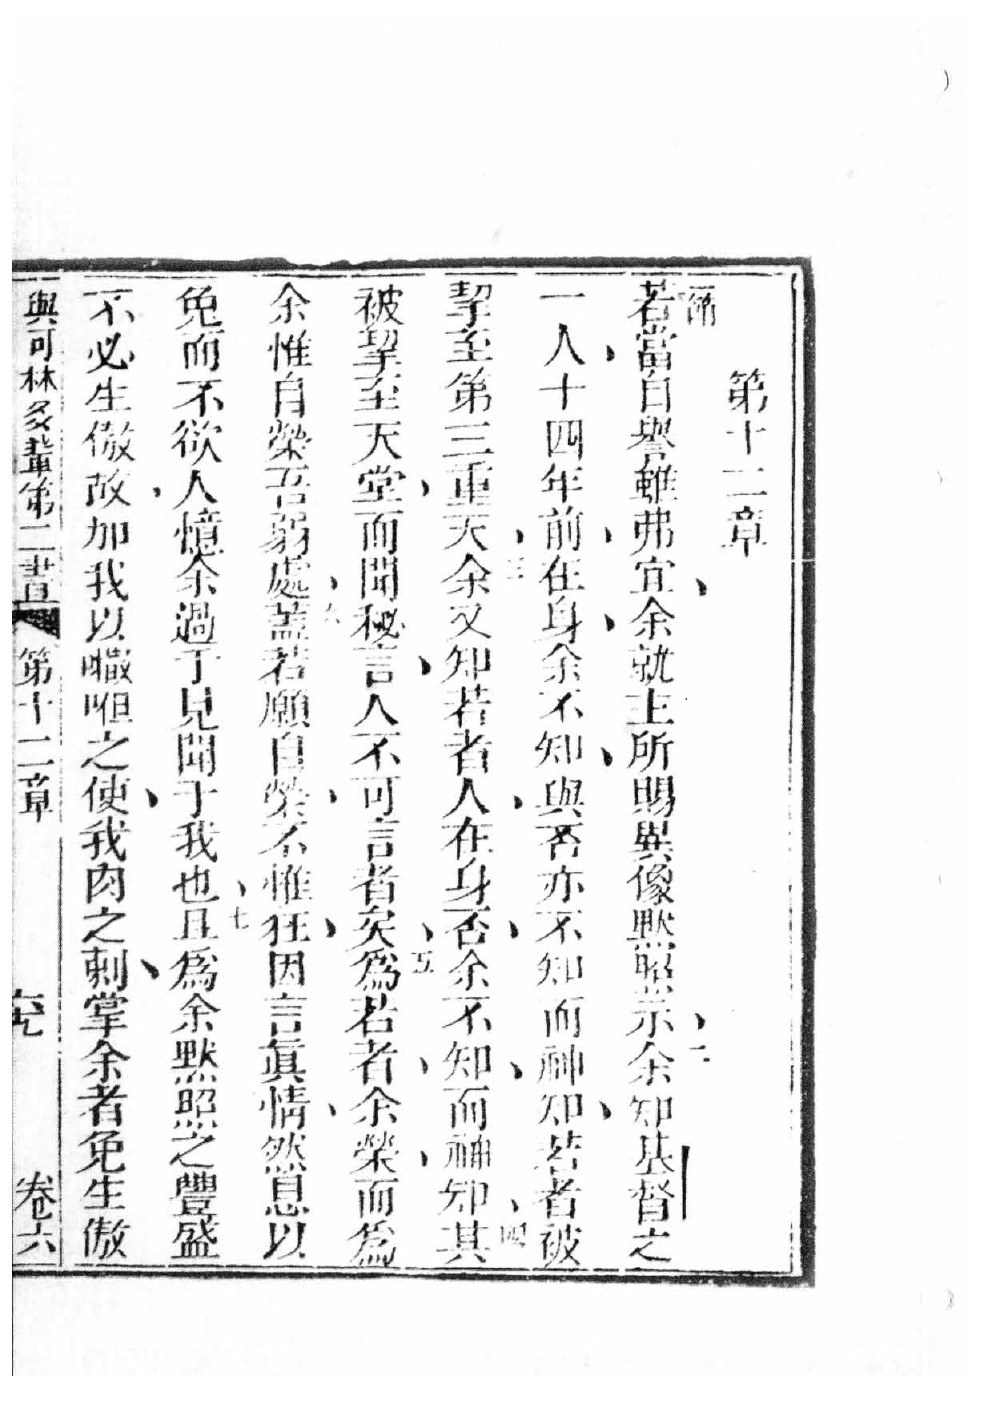 第十二章
一節
若當自譽雖弗宜余就主所賜異像默照示余知基督之
二
一人十四年前在身余不知與否亦不知而神知若者被
三
挈至第三重天余又知若者人在身否余不知而神知其
四
被挈至天堂而聞秘言人不可言者矣為若者余榮而為
五
余惟自榮吾弱處蓋若願自榮不惟狂因言眞情然息以
六
免而不欲人憶余過于見聞于我也且為余默照之豐盛
七
不必生傲故加我以𠿕呾之使我肉之刺掌余者免生傲
與可林多輩第二書 第十二章 卷六